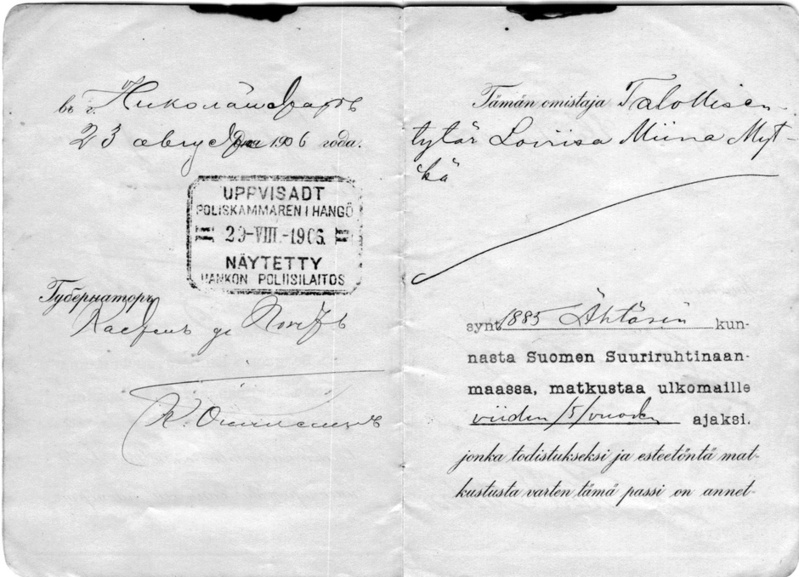 въ г. Николайстадтъ
23 августа 1906 года.
UPPVISADT
POLISKAMMAREN I HANGÖ
29-VIII.-1906
NÄYTETTY
HANKON POLIISILAITOS
Губернаторъ
Tämän omistaja Talollisen
tytär Loviisa Miina Myt-
kä
synt. 1885 Ähtärin kun-
nasta Suomen Suuriruhtinaan-
maassa, matkustaa ulkomaille
viiden /5/ vuoden ajaksi.
jonka todistukseksi ja esteetöntä mat-
kustusta varten tämä passi on annet-